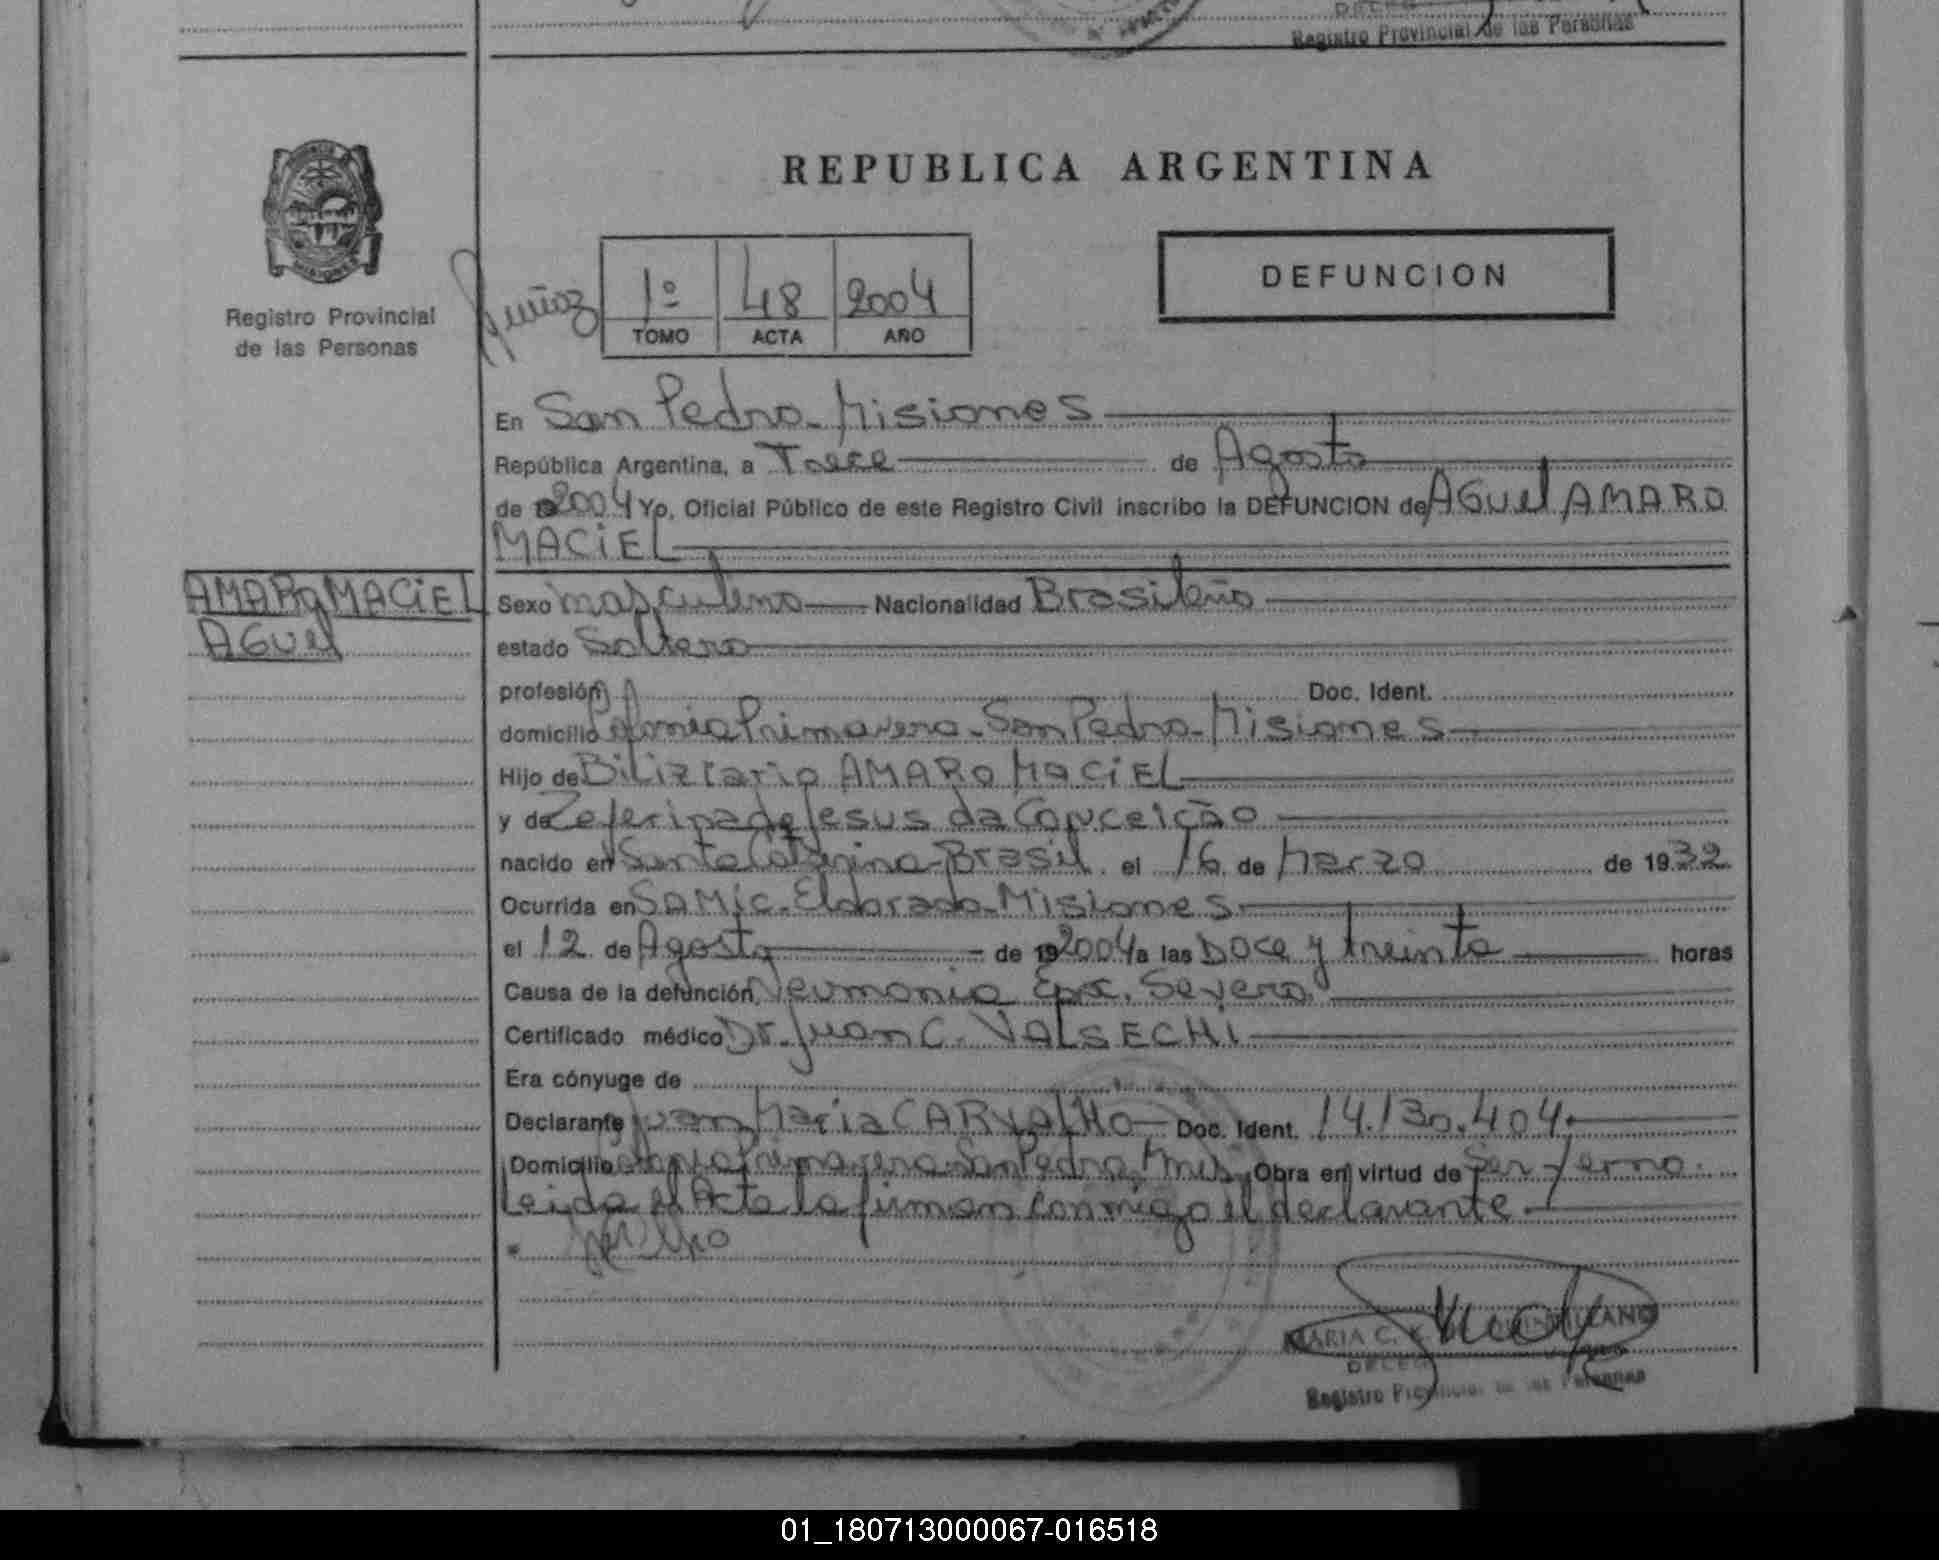 Registro Provincial de las Personas
REPUBLICA ARGENTINA
DEFUNCION
Registro Provincial
de las Personas
1º 48 2004
TOMO ACTA AÑO
En San Pedro - Misiones
República Argentina, a Trece de Agosto
de 2004 Yo, Oficial Público de este Registro Civil inscribo la DEFUNCION de AGUEL AMARO
MACIEL
AMARO MACIEL
AGUEL
Sexo masculino Nacionalidad Brasileño
estado Soltero
profesión Doc. Ident.
domicilio Colonia Primavera - San Pedro - Misiones
Hijo de Biliztario AMARO MACIEL
y de Zeferina de Jesus da Conceição
nacido en Santa Catarina - Brasil. el 16 de Marzo de 1932
Ocurrida en SAMic - Eldorado - Misiones
el 12 de Agosto de 2004 a las Doce y treinta horas
Causa de la defunción Neumonia Severa
Certificado médico Dr. Juan C. VALSECHI
Era cónyuge de
Declarante Juan Maria CARVALHO Doc. Ident. 14.130.404
Domicilio Colonia Primavera - San Pedro, Mnes, Obra en virtud de Ser Yerno.
Leida el Acta la firman conmigo el declarante
MARIA C.
Registro Provincial de las Personas
01_180713000067-016518